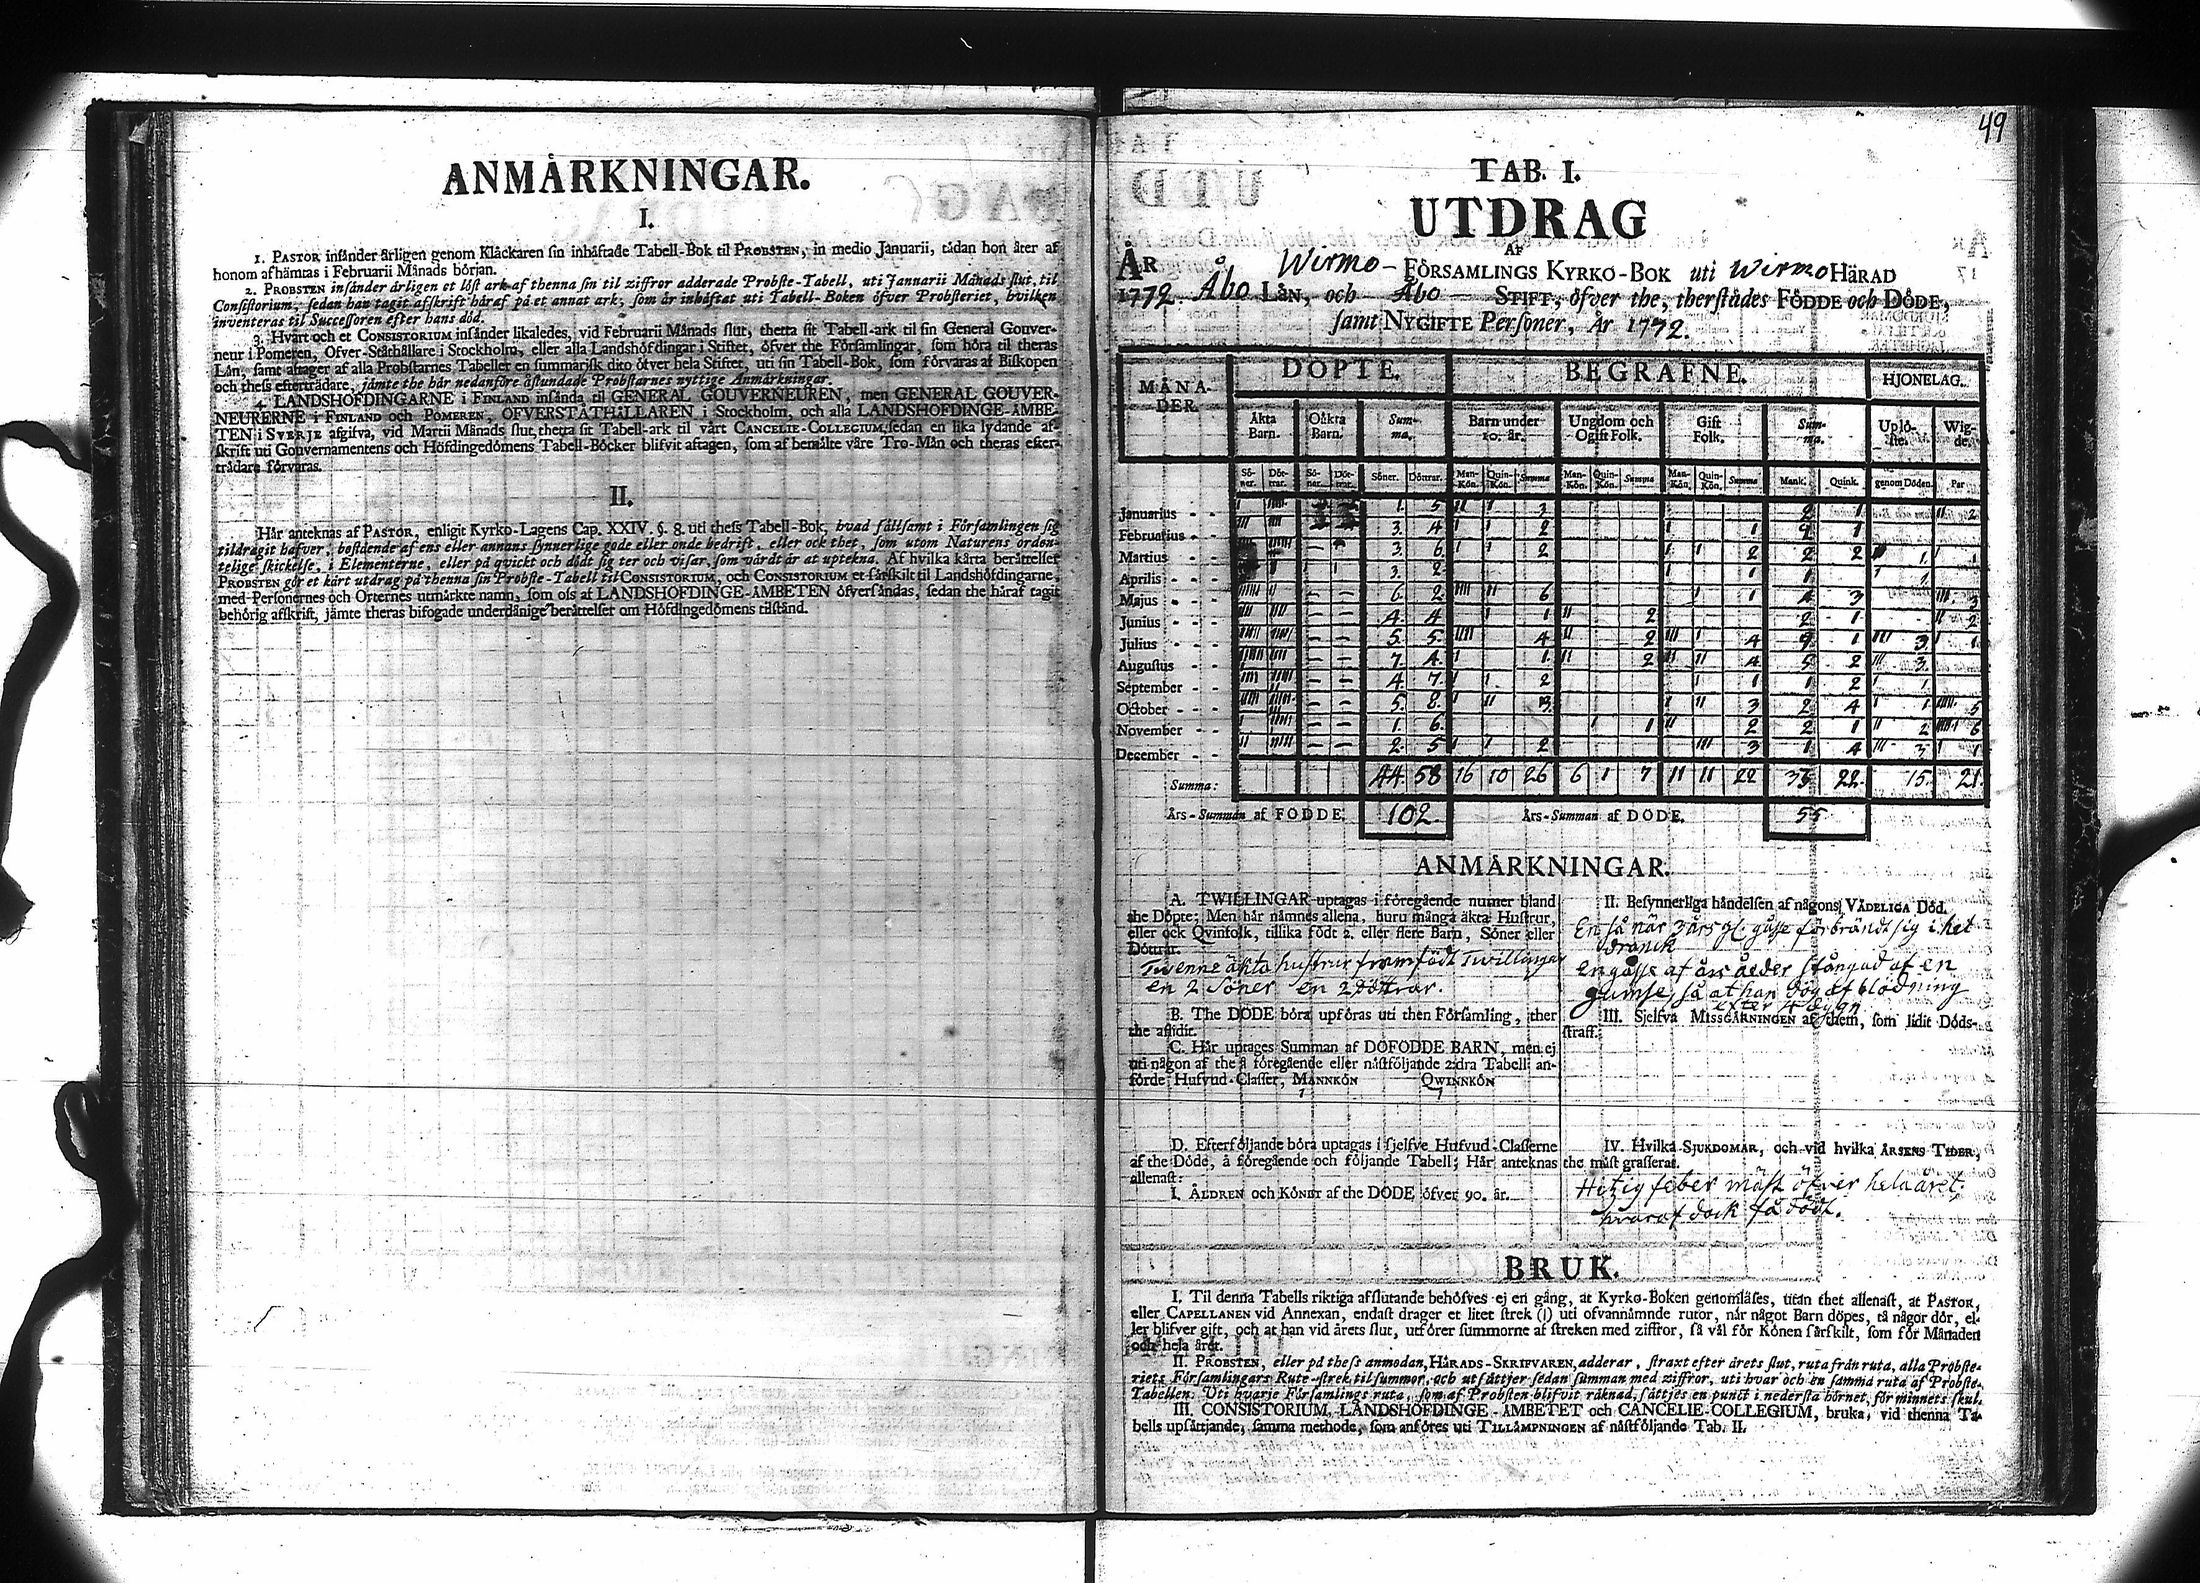 ANMÄRKNINGAR.
I.
1. PASTOR insänder årligen genom Klåckaren sin inhäftade Tabell-Bok til PROBSTEN, in medio Januarii, tådan hon åter af
honom afhämtas i Februarii Månads början.
2. PROBSTEN insänder årligen et löst ark af thenna sin til ziffror adderade Probste-Tabell, uti Januarii Månads slut, til
Consistorium; sedan han tagit afskrift häraf på et annat ark, som är inhäftat uti Tabell-Boken öfver Probsteriet, hvilken
inventeras til Successoren efter hans död.
3. Hvart och et CONSISTORIUM insänder likaledes, vid Februarii Månads slut, thetta sit Tabell-ark til sin General Gouver-
neur i Pomeren, Öfver-Ståthållare i Stockholm, eller alla Landshöfdingar i Stiftet, öfver the Församlingar, som höra til theras
Län, samt aftager af alla Probstarnes Tabeller en summarisk dito öfver hela Stiftet, uti sin Tabell-Bok, som förvaras af Biskopen
och thess efterträdare, jämte the här nedanföre åstundade Probstarnes nyttige Anmärkningar.
4. LANDSHÖFDINGARNE i FINLAND insända til GENERAL GOUVERNEUREN, men GENERAL GOUVER-
NEURERNE i FINLAND och POMEREN, ÖFVERSTÅTHÅLLAREN i Stockholm, och alla LANDSHÖFDINGE-ÄMBE-
TEN i SVERJE afgifva, vid Martii Månads slut, thetta sit Tabell-ark til vårt CANCELIE-COLLEGIUM, sedan en lika lydande af-
skrift uti Gouvernamentens och Höfdingedömens Tabell-Böcker blifvit aftagen, som af bemälte våre Tro-Män och theras efter-
trädare förvaras.
II.
Här anteknas af PASTOR, enligit Kyrko-Lagens Cap. XXIV. §. 8. uti thess Tabell-Bok, hvad sällsamt i Församlingen sig
tildragit hafver, bestående af ens eller annans synnerlige gode eller onde bedrift, eller ock thet, som utom Naturens orden-
telige skickelse, i Elementerne, eller på qvickt och dödt sig ter och visar, som värdt är at uptekna. Af hvilka kårta berättelser
PROBSTEN gör et kårt utdrag på thenna sin Probste-Tabell til CONSISTORIUM, och CONSISTORIUM et särskilt til Landshöfdingarne,
med Personernes och Orternes utmärkte namn, som oss af LANDSHÖFDINGE-ÄMBETEN öfversändas, sedan the häraf tagit
behörig afskrift, jämte theras bifogade underdånige berättelser om Höfdingedömens tilstånd.
49
TAB. I.
UTDRAG
AF
ÅR Wirmo - FÖRSAMLINGS KYRKO-BOK uti Wirmo HÄRAD
1772. Åbo LÄN, och Åbo STIFT, öfver the, therstädes FÖDDE och DÖDE,
samt NYGIFTE Personer, År 1772.
MÅNA-DER. DÖPTE. BEGRAFNE. HJONELAG.
Äkta Barn. Oäkta Barn. Summa. Barn under 10. år. Ungdom och Ogift Folk. Gift Folk. Summa. Uplöste. Wigde.
Sö-ner. Döt-trar. Sö-ner. Döt-trar. Söner. Döttrar. Man-Kön. Quin-Kön. Summa Man-Kön. Quin-Kön. Summa Man-Kön. Quin-Kön. Summa Mank. Quink. genom Döden. Par
Januarius - - 1. 5 3 2 1 2
Februarius - - 3. 4 2 1 1
Martius - - 3. 6. 2 2 2 2 1. 1
Aprilis - - 3. 2 1 1 1
Majus - - 6. 2 6 1 4 3 3
Junius - - 4. 4 1 2 2 1 2
Julius - - 5. 5 4 2 4 9 1 3 1
Augustus - - 7. 4. 1. 2 4 5 2 3.
September - - 4. 7. 2 1 1 2 1
October - - - 5. 8. 3. 3 2 4 1 5
November - - 1. 6. 1 2 2 1 2 6
December - - 2. 5 2 3 1 4 3 1
Summa: 44. 58 16 10 26 6 1 7 11 11 22 33 22. 15. 21.
Års-Summan af FÖDDE. 102. Års-Summan af DÖDE. 55
ANMÄRKNINGAR.
A. TWILLINGAR uptagas i föregående numer bland
the Döpte; Men här nämnes allena, huru många äkta Hustrur,
eller ock Qvinfolk, tillika födt 2. eller flere Barn, Söner eller
Döttrar.
Twenne äkta hustrur framfödt Twillingar
en 2 Söner en 2 Döttrar.
B. The DÖDE böra upföras uti then Församling, ther
the aflidit.
C. Här uptages Summan af DÖFÖDDE BARN, men ej
uti någon af the å föregående eller nästföljande 2:dra Tabell an-
förde Hufvud-Classer, MANNKÖN QWINNKÖN
1 1
D. Efterföljande böra uptagas i sjelfve Hufvud-Classerne
af the Döde, å föregående och följande Tabell; Här anteknas
allenast:
I. ÅLDREN och KÖNET af the DÖDE öfver 90. år.
II. Besynnerliga händelsen af någons VÅDELIGA Död.
En så när 3 års gl. gåsse förbrändt sig i het
dranck
en gåsse af års ålder stångad af en
gumse, så at han dog af blödning
efter 4 dygn
III. Sjelfva MISSGÄRNINGEN af them, som lidit Döds-
straff.
IV. Hvilka SJUKDOMAR, och vid hvilka ÅRSENS TIDER,
the mäst grasserat.
Hitzig feber mäst öfver hela året,
hvaraf dock få dödt.
BRUK.
I. Til denna Tabells riktiga afslutande behöfves ej en gång, at Kyrko-Boken genomläses, utan thet allenast, at PASTOR,
eller CAPELLANEN vid Annexan, endast drager et litet strek (|) uti ofvannämnde rutor, när något Barn döpes, tå någor dör, el-
ler blifver gift, och at han vid årets slut, utförer summorne af streken med ziffror, så väl för Könen särskilt, som för Månaden
och hela året.
II. PROBSTEN, eller på thess anmodan, HÄRADS-SKRIFVAREN, adderar, straxt efter årets slut, ruta från ruta, alla Probste-
riets Församlingars Rute-strek til summor, och utsättjer sedan summan med ziffror, uti hvar och en samma ruta af Probste-
Tabellen. Uti hvarje Församlings ruta, som af Probsten blifvit räknad, sättjes en punct i nedersta hörnet, för minnets skul.
III. CONSISTORIUM, LANDSHÖFDINGE-ÄMBETET och CANCELIE-COLLEGIUM, bruka, vid thenna Ta-
bells upsättjande, samma methode, som anföres uti TILLÄMPNINGEN af nästföljande Tab. II.